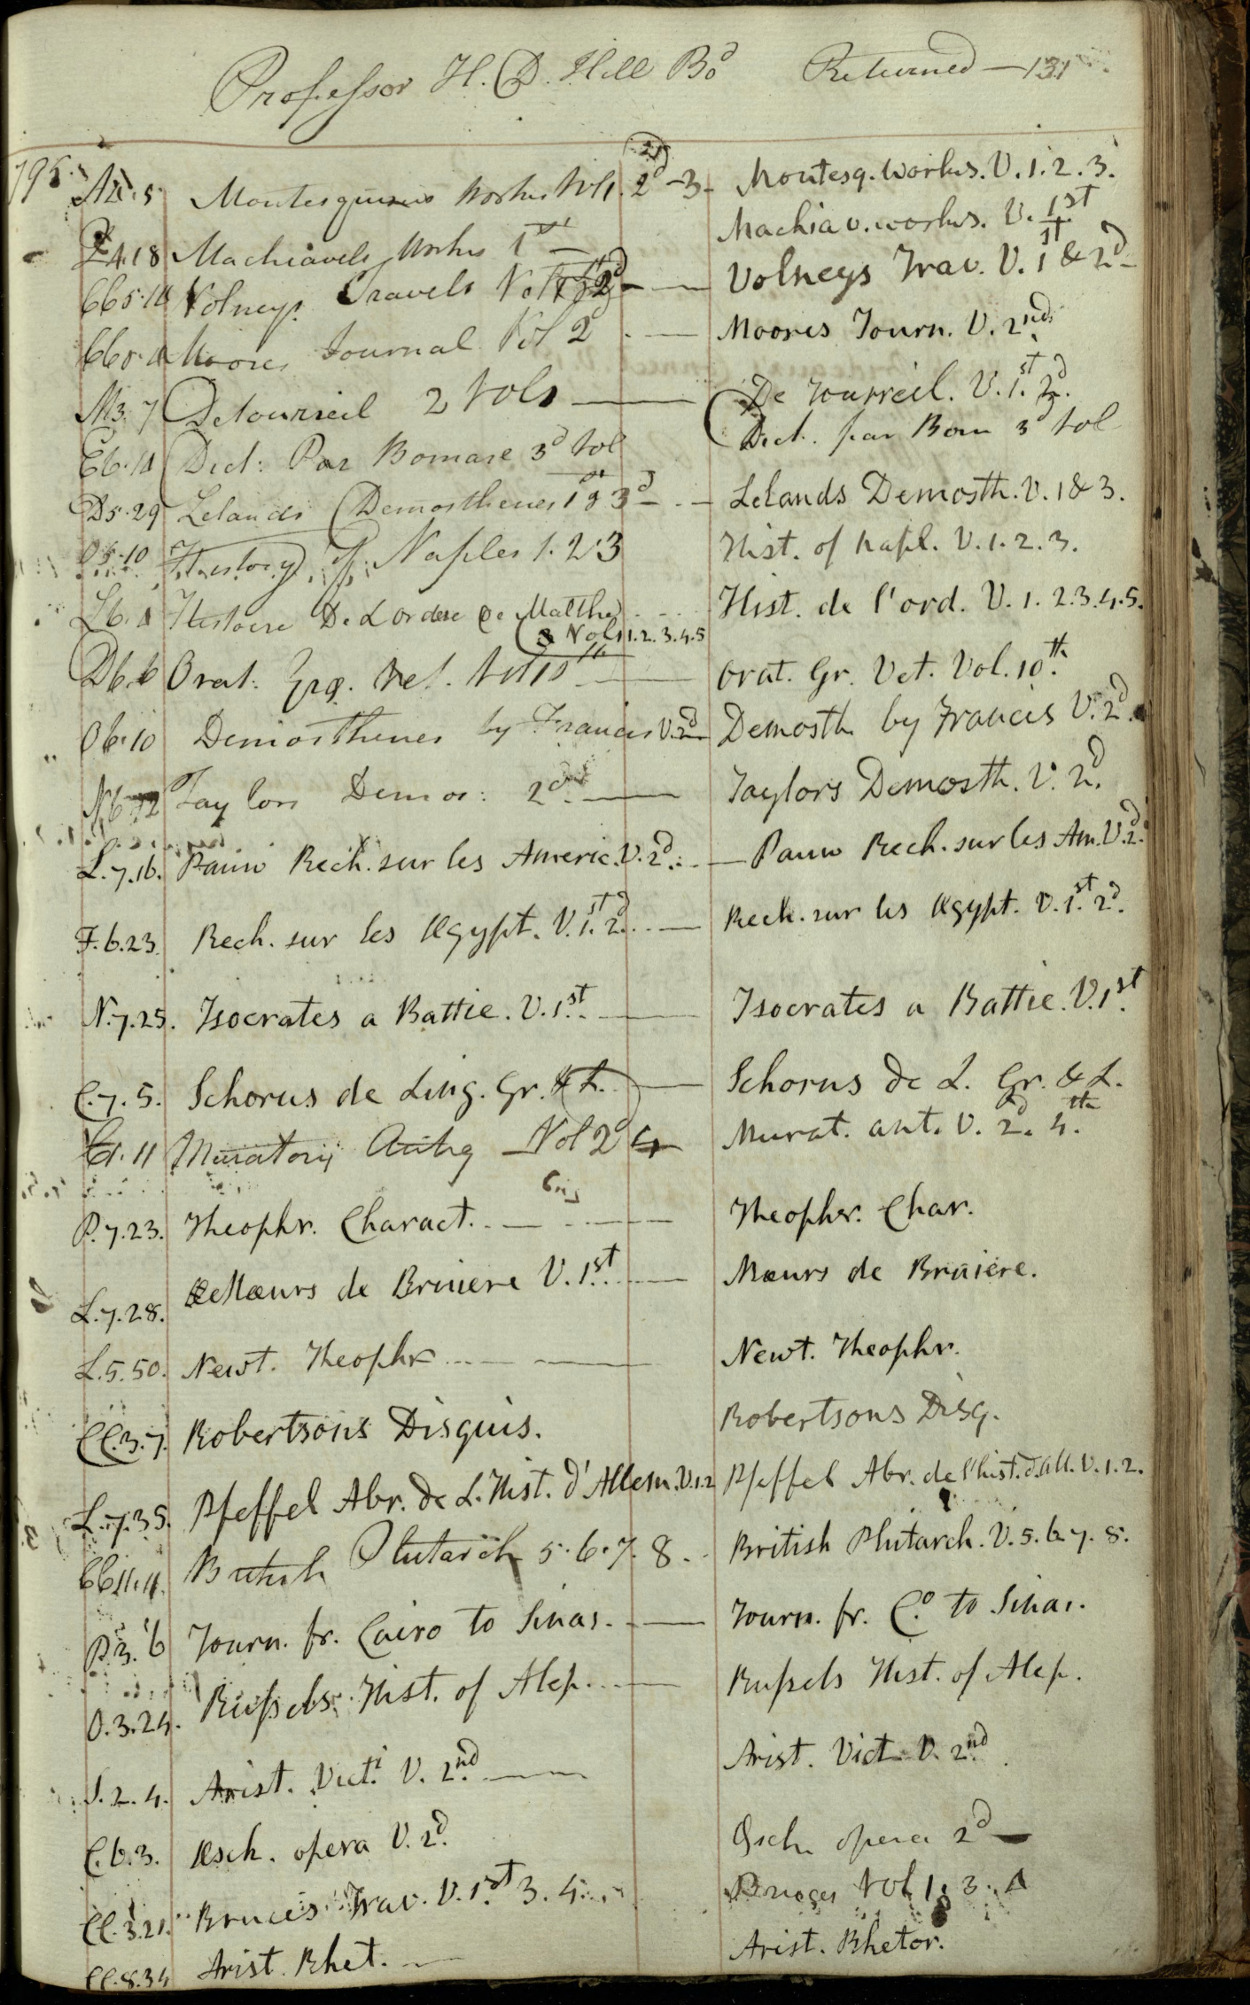 Professor H. D. Hill Bd Returned — 131
795. Montesquieus Works Vols. 2d - 3 - Montesq. Works. V. 1. 2. 3.
Z4.18 Machiavels Works 1st Machiav. works. V. 1st
CC5.10 Volneys Travels Vol 1st 2d — Volneys Trav. V. 1st & 2d
Moores Journal Vol 2d — Moores Journ. V. 2nd
M3.7 Detourreil 2 Vols — De Tourreil. V. 1st. 2d.
Dict: Par Bomare 3d Vol Dict. par Bom 3d Vol
D5.29 Lelands Demosthenes 1st & 3d - Lelands Demosth. V. 1 & 3.
O5.10 History of Naples 1. 2. 3 Hist. of Napl. V. 1. 2. 3.
Histoire De Lordre De Malthe Hist. de l'ord. V. 1. 2. 3. 4. 5.
Vols 1. 2. 3. 4. 5
Orat. Grae. Vet. Vol 10th — Orat. Gr. Vet. Vol. 10th.
O6.10 Demosthenes by Francis V. 2d Demosth by Francis V. 2d.
Taylors Demos: 2d. — Taylors Demosth. V. 2d.
L.7.16. Pauw Rech. sur les Americ. V. 2d. — Pauw Rech. sur les Am. V. 2d.
F.6.23. Rech. sur les Ægypt. V. 1st. 2d. — Rech. sur les Ægypt. V. 1st. 2d.
N.7.25. Isocrates a Battie. V. 1st. — Isocrates a Battie. V. 1st.
C.7.5. Schorus de Ling. Gr. & L. — Schorus de L. Gr. & L.
Muratorij Antiq Vol 2d 4 Murat. ant. V. 2d. 4th.
P.7.23. Theophr. Charact. — Theophr. Char.
L.7.28. Mœurs de Bruiere V. 1st. — Mœurs de Bruiere.
L.5.50. Newt. Theophr — Newt. Theophr.
CC.3.7. Robertsons Disquis. Robertsons Disq.
L.7.35. Pfeffel Abr. de L. Hist. d'Allem. V. 1. 2 Pfeffel Abr. de l'hist. d'All. V. 1. 2.
CC11.11. British Plutarch 5. 6. 7. 8. British Plutarch. V. 5. 6. 7. 8.
P.3.6 Journ. fr. Cairo to Sinai. — Journ. fr. Co. to Sinai.
O.3.24. Russels Hist. of Alep. — Russels Hist. of Alep.
2.4. Arist. Victi. V. 2nd. — Arist. Vict. V. 2nd
C.6.3. Æsch. opera V. 2d. Æsch. opera 2d —
CC.3.21. Bruces Trav. V. 1st. 3. 4. Bruces Vol 1. 3. 4
CC.8.34 Arist. Rhet. — Arist. Rhetor.